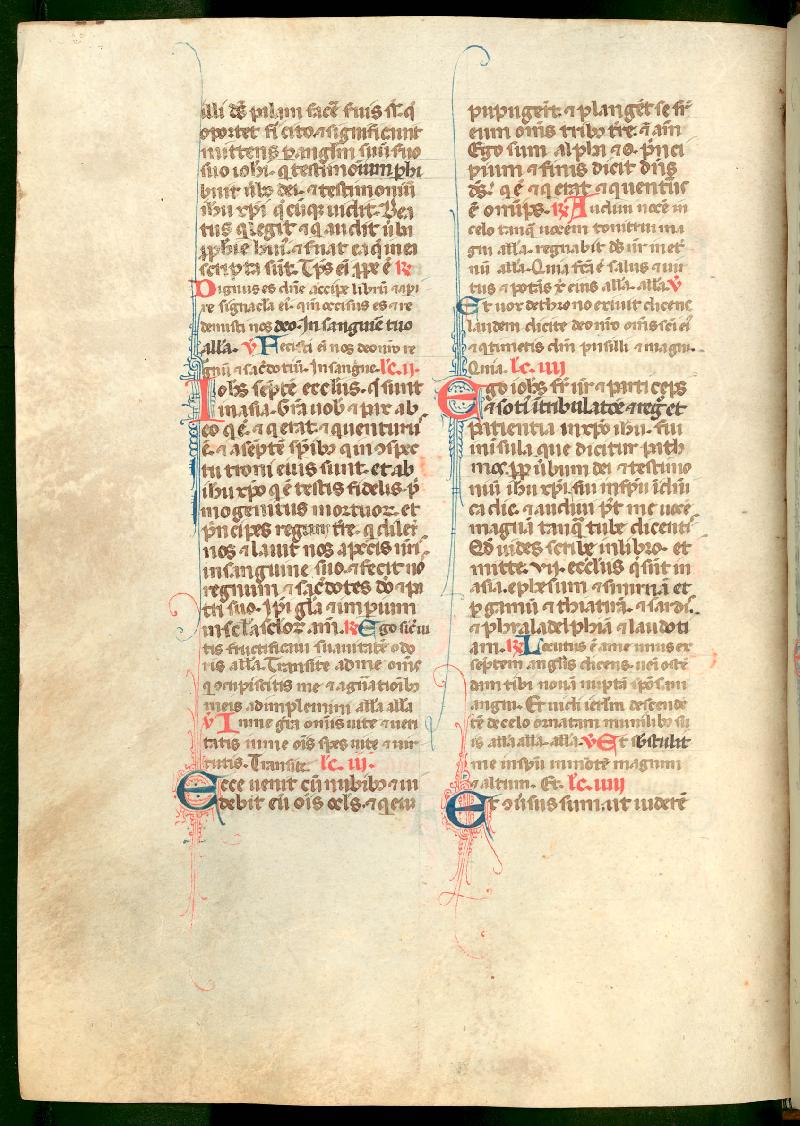 illi dẽ palam facẽ suis suis q̃
oportet fi cito. ⁊ significauit
mittens ꝑ anglm̃ suũ suo
suo iohi. q̇ testimonium phi
buit ũbo dei. ⁊ testimoniũ
ihu xp̃i q̃cũq; uidit. Bea
tus q̇ legit ⁊ q̇ audit ũba
ꝓphie hui᷒. ⁊ suat ea q̃ in ea
scripta sũt. Tp̃s eĩ ꝓpe ẽ ℟
Dignus es dñe accipe librũ ⁊ api
re signacla ei᷒. qm̃ occisus es ⁊ re
demisti nos deo. In sanguĩe tuo
alla. ℣ Fecisti eĩ nos deo nr̃o re
gnũ ⁊ sac̃dotiũ. In sanguĩe. lc̃. ij.
Iohs septẽ eccliis. q̃ sunt
in asia. Gr̃a uob ⁊ pax ab
eo q̇ ẽ. ⁊ q̇ erat. ⁊ q̇ uenturu᷒
ẽ. ⁊ a septẽ sp̃ibȝ qui in ↄspec
tu troni eius sunt. et ab
ihu xp̃o q̇ ẽ testis fidelis. p̃
mogenitus mortuoꝝ. et
p̃nceps regum t̃re. q̇ dilex̃
nos ⁊ lauit nos a pccis nr̃is
in sanguine suo. ⁊ fecit nõ
regnum ⁊ sac̃dotes dõ ⁊ pa
tri suo. Ip̃i gl̃a ⁊ impium
in scl̃a scloꝝ. am̃. ℟ Ego sic̃ ui
tis fructificaui suauitatẽ odo
ris alla. Transite ad me om̃s
q̇ ↄcupiscitis me ⁊ a gñatiõibȝ
meis adimplemini alla alla
℣ In me gr̃a om̃is uite ⁊ ueri
tatis in me ois spes uite ⁊ uir
tutis. Transite. lc̃. iij.
Ecce uenit cũ nubibȝ ⁊ ui
debit eũ oĩs ocl̃s. ⁊ q̇ eum
pupugerĩt. ⁊ plangẽt se sr̃
eum om̃s tribȝ t̃re. ẽ am̃
Ego sum alpha ⁊ o. p̃nci
pium ⁊ finis dicit dñs
ds̃. q̇ ẽ ⁊ q̇ erat ⁊ q̇ uentur᷒
ẽ om̃ips. ℟ Audiui uocẽ in
celo tanq̃ uocem tonitrui ma
gni alla. regnabit ds̃ nr̃ in et᷒
nũ alla. Quia fc̃a ẽ salus ⁊ uir
tus ⁊ potas xp̃i eius alla. alla. ℣
Et uox de throno exiuit dicens
laudem dicite deo nr̃o om̃s sc̃i ei᷒
⁊ q̇ timetis dm̃ pusilli ⁊ magni.
Quia. lc̃. iiii
Ego iohs fr̃ ur̃ ⁊ particeps
⁊ soti᷒ ĩ tribulatõe ⁊ reg̃ et
patientia in xp̃o ihu. fui
in isula que dicitur path
mos. ꝓp ũbum dei ⁊ testimo
nium ihu xp̃i. fui in sp̃u ĩ dn̄i
ca die. ⁊ audiui p᷒t me uocẽ
magnã tanq̃ tube dicentis
Qd̃ uides scribe in libro. et
mitte. vii. eccliis q̃ sũt in
asia. ephesum ⁊ smirnã et
ꝑgamũ ⁊ thiatirã. ⁊ sardis.
⁊ phyladelphiã ⁊ laudoti
am. ℟ Locutus ẽ ad me unus ex
septem anglis dicens. ueni ostẽ
dam tibi nouã nuptã spõsam
angni. Et uidi ierlm̃ descendẽ
tẽ de celo ornatam monilibȝ su
is alla alla. alla. ℣ Et sbstulit
me in sp̃u in mõtẽ magnum
⁊ altum. Et. lc̃. iiiii
Et ↄũsus sum. ut uiderẽ